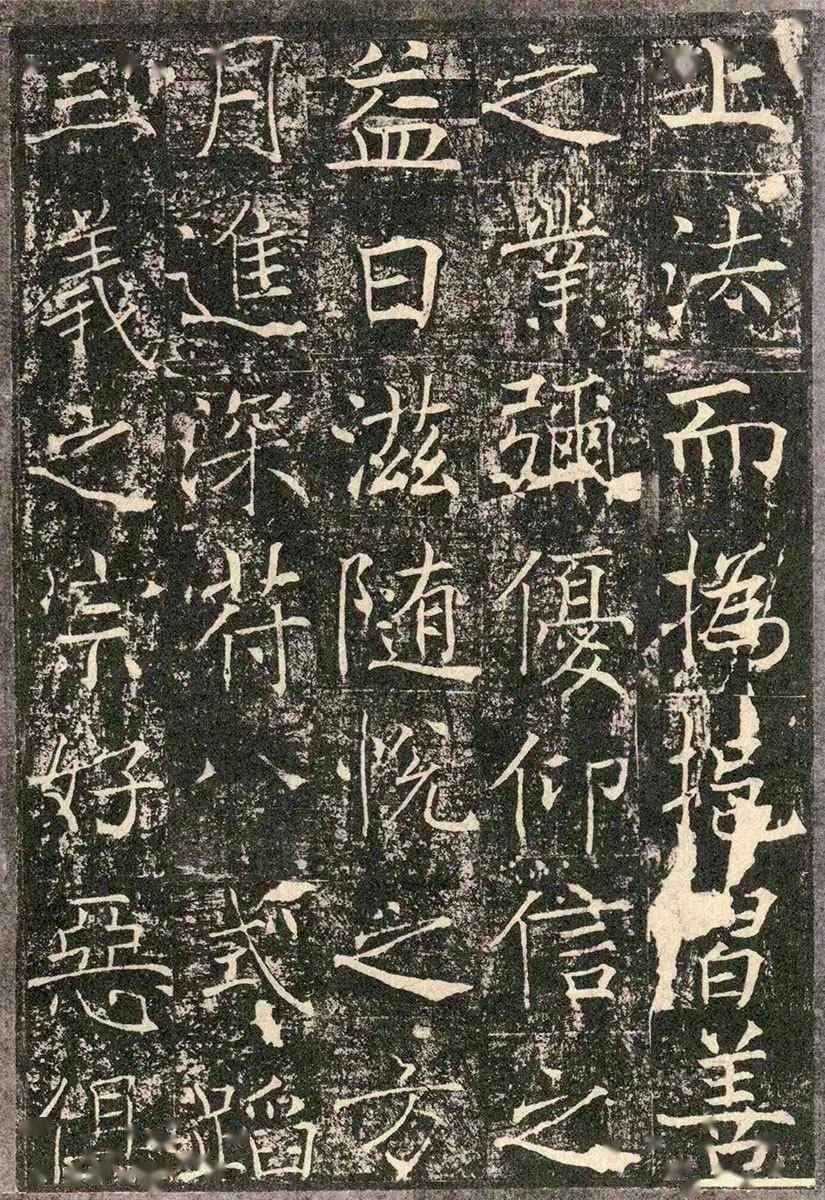 上法而撝挹習善
之業彌優仰信之
益日滋随慨之方
月進深符八式蹈
三義之宗好惡俱